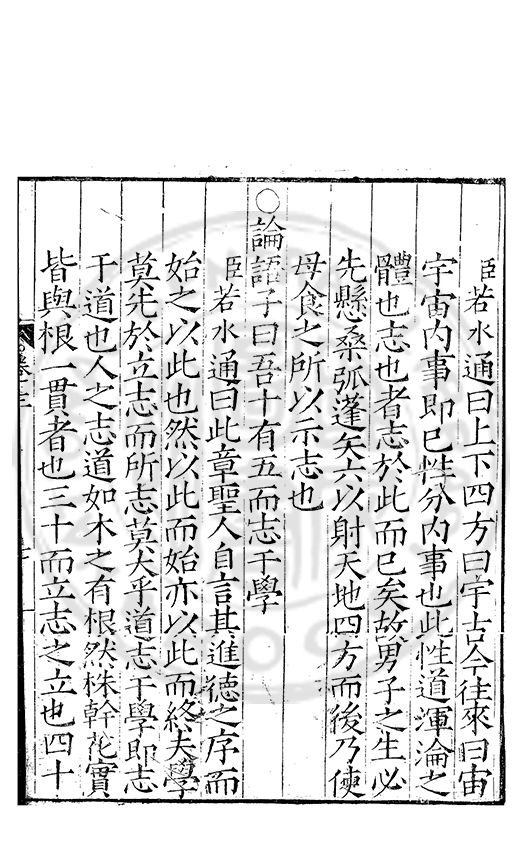 臣若水通曰上下四方曰宇古今往來曰宙
宇宙内事即己性分内事也此性道渾淪之
體也志也者志於此而已矣故男子之生必
先懸桑弧蓬矢六以射天地四方而後乃使
母食之所以示志也
○論語子曰吾十有五而志于學
臣若水通曰此章聖人自言其進德之序而
始之以此也然以此而始亦以此而終夫學
莫先於立志而所志莫大乎道志于學即志
于道也人之志道如木之有根然株幹花實
皆與根一貫者也三十而立志之立也四十